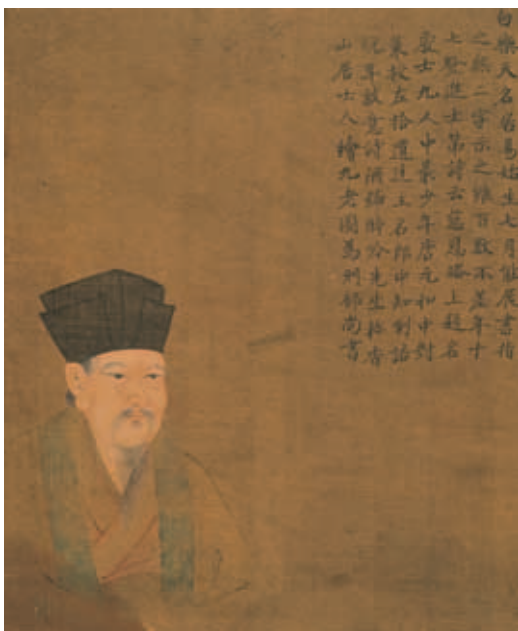 白樂天名居易始生七月能展書指
之無二字示之雖百數不差年十
七登進士第詩云慈恩塔上題名
處士九人中最少年唐元和中對
策授左拾遺進主客郎中知制誥
晚年放意詩酒號醉吟先生於香
山居士人繪九老圖為刑部尚書